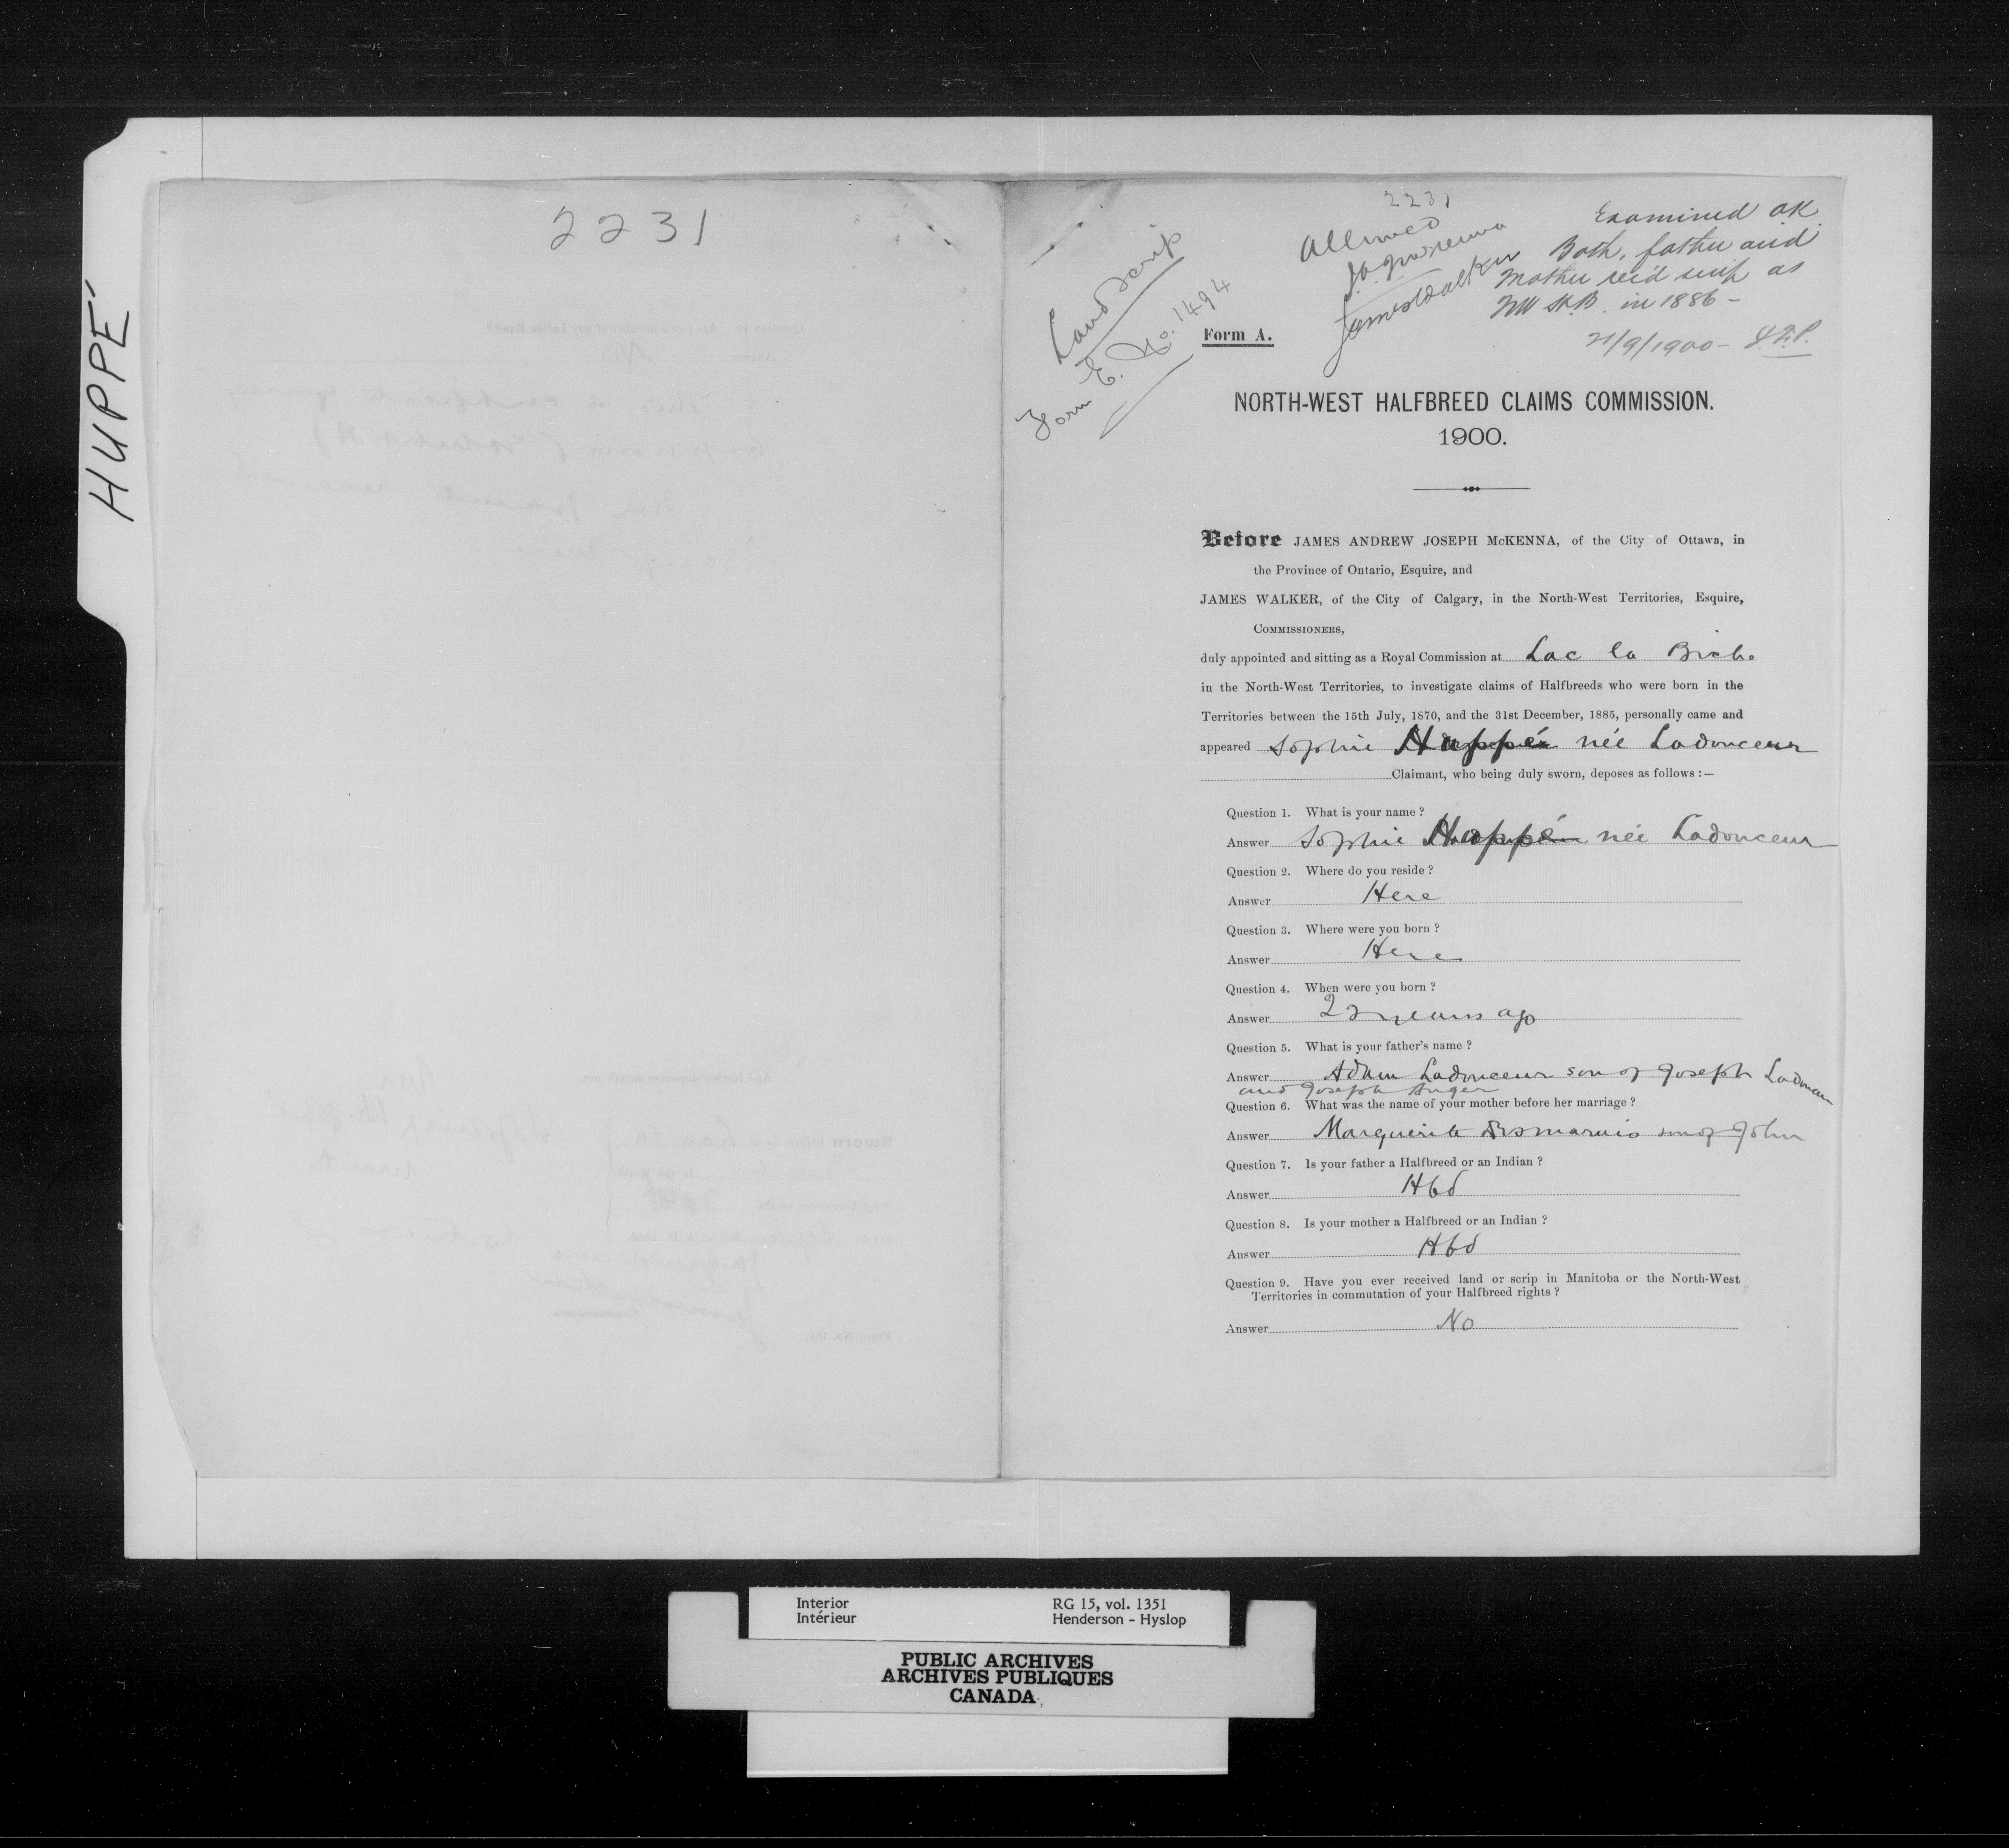 HUPPÉ
2231
2231
Land Scrip
Form E. No. 1494
Allowed
J.A.J. McKenna
James Walker
Examined OK
Both, father and
Mother rec'd scrip as
NW H.B. in 1886 -
21/9/1900 -
Form A.
NORTH-WEST HALFBREED CLAIMS COMMISSION.
1900.
Before JAMES ANDREW JOSEPH McKENNA, of the City of Ottawa, in
the Province of Ontario, Esquire, and
JAMES WALKER, of the City of Calgary, in the North-West Territories, Esquire,
COMMISSIONERS,
duly appointed and sitting as a Royal Commission at Lac la Biche
in the North-West Territories, to investigate claims of Halfbreeds who were born in the
Territories between the 15th July, 1870, and the 31st December, 1885, personally came and
appeared Sophie Huppé née Ladouceur
Claimant, who being duly sworn, deposes as follows :—
Question 1. What is your name ?
Answer Sophie Huppé née Ladouceur
Question 2. Where do you reside ?
Answer Here
Question 3. Where were you born ?
Answer Here
Question 4. When were you born ?
Answer 22 years ago
Question 5. What is your father's name ?
Answer Adam Ladouceur son of Joseph Ladouceur
and Joseph Auger
Question 6. What was the name of your mother before her marriage ?
Answer Marguerite Desmarais son of John
Question 7. Is your father a Halfbreed or an Indian ?
Answer Hbd
Question 8. Is your mother a Halfbreed or an Indian ?
Answer Hbd
Question 9. Have you ever received land or scrip in Manitoba or the North-West
Territories in commutation of your Halfbreed rights ?
Answer No
Interior RG 15, vol. 1351
Intérieur Henderson - Hyslop
PUBLIC ARCHIVES
ARCHIVES PUBLIQUES
CANADA